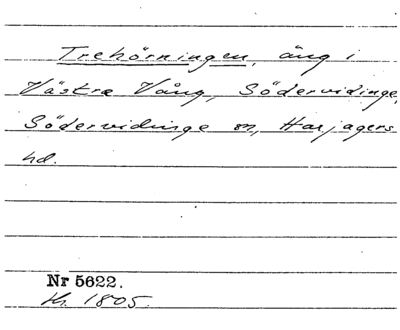 Trehörningen, äng i
Västra Vång, Södervidinge,
Södervidinge sn, Harjagers
hd.
Nr 5622.
Kr. 1805.